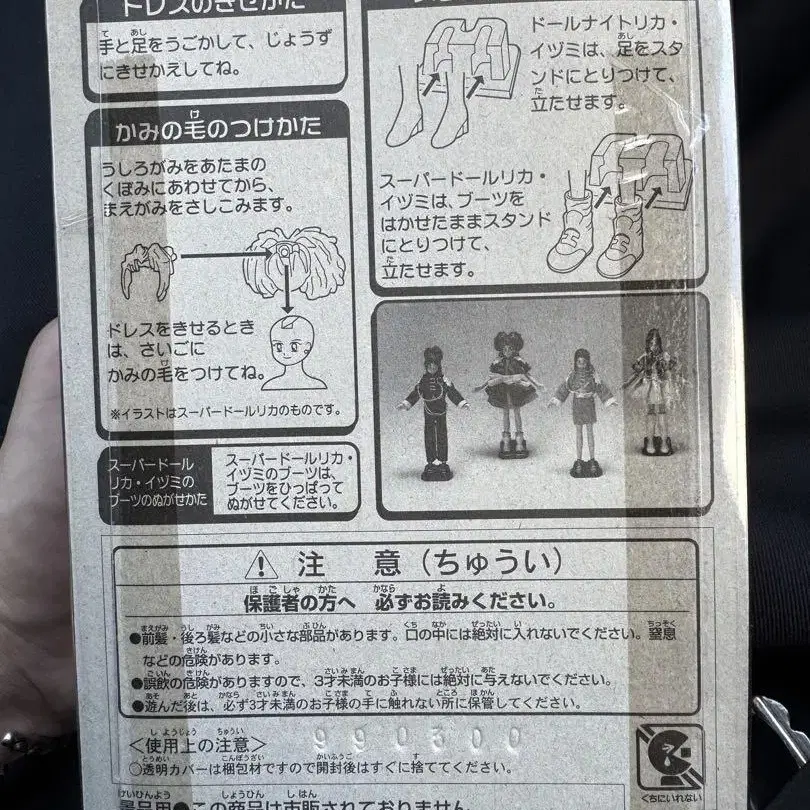 ドレスのきせかた
手と足をうごかして、じょうず
にきせかえしてね。
かみの毛のつけかた
うしろがみをあたまの
くぼみにあわせてから、
まえがみをさしこみます。
ドレスをきせるとき
は、さいごに
かみの毛をつけてね。
※イラストはスーパードールリカのものです。
スーパードール
リカ・イヅミの
ブーツのぬがせかた
スーパードールリカ・
イヅミのブーツは、
ブーツをひっぱって
ぬがせてください。
ドールナイトリカ・
イヅミは、足をスタ
ンドにとりつけて、
立たせます。
スーパードールリカ・
イヅミは、ブーツを
はかせたままスタンド
にとりつけて、
立たせます。
注 意(ちゅうい)
保護者の方へ 必ずお読みください。
●前髪・後ろ髪などの小さな部品があります。口の中には絶対に入れないでください。窒息
などの危険があります。
●誤飲の危険がありますので、3才未満のお子様には絶対に与えないでください。
●遊んだ後は、必ず3才未満のお子様の手に触れない所に保管してください。
<使用上の注意>
990300
○透明カバーは梱包材ですので開封後はすぐに捨ててください。
くちにいれない
景品用●この商品は市販されておりません。